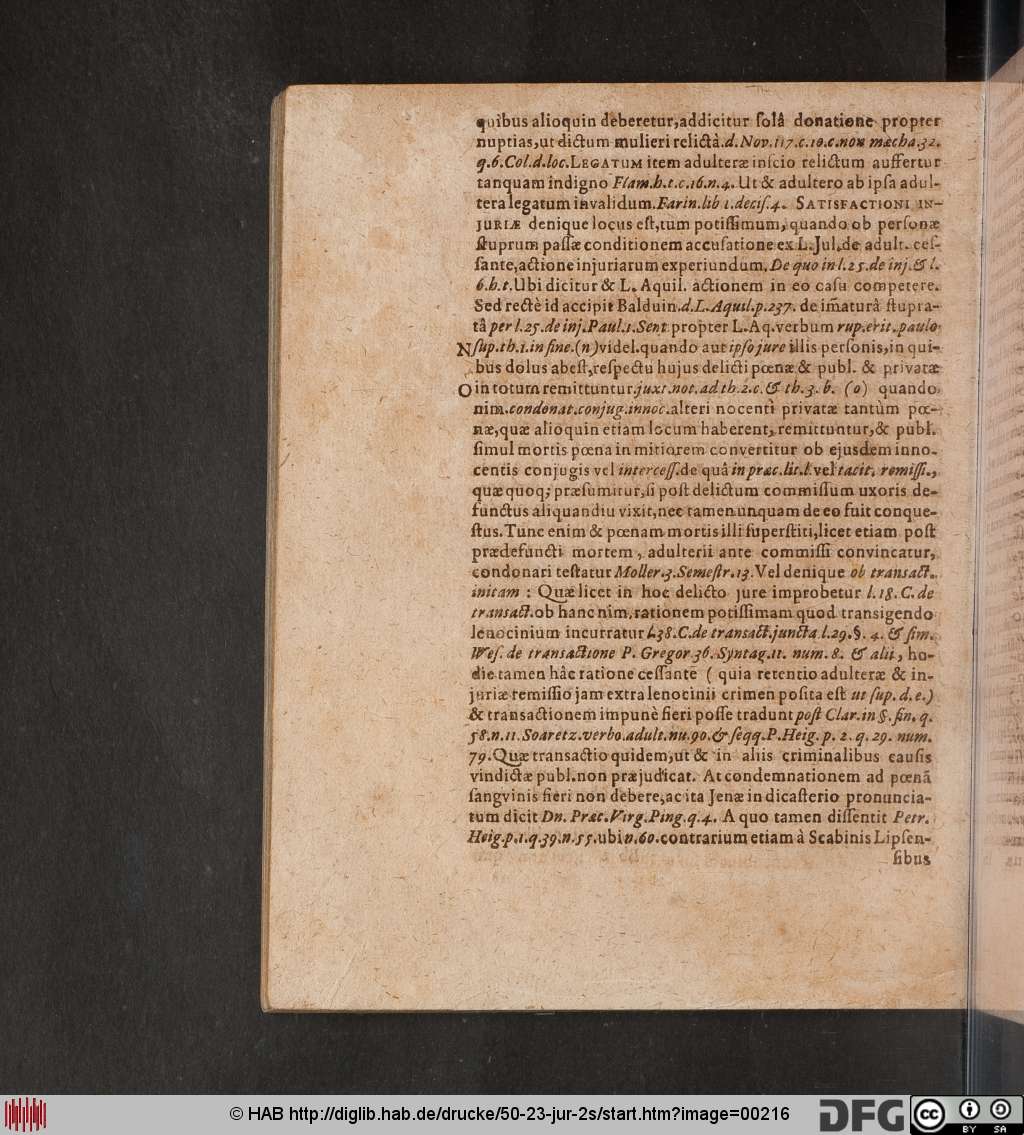 quibus alioquin deberetur, addicitur ſolâ donatione propter
nuptias, ut dictum mulieri relictâ. d. Nov. 117. c. 10. c. non mæcha. 32.
q. 6. Col. d. loc. LEGATUM item adulteræ inſcio relictum auffertur
tanquam indigno Flam. h. t. c. 16. n. 4. Ut & adultero ab ipſa adul-
tera legatum invalidum. Farin. lib 1. deciſ. 4. SATISFACTIONI IN-
JURIÆ denique locus eſt, tum potiſſimum, quando ob perſonæ
ſtuprum paſſæ conditionem accuſatione ex L. Jul. de adult. ceſ-
ſante, actione injuriarum experiundum. De quo in l. 25. de inj. & l.
6. h. t. Ubi dicitur & L. Aquil. actionem in eo caſu competere.
Sed rectè id accipit Balduin. d. L. Aquil. p. 237. de im̃aturâ ſtupra-
tâ per l. 25. de inj. Paul. 1. Sent propter L. Aq. verbum rup. erit. paulo
N ſup. th. 1. in fine. (n) videl. quando aut ipſo jure illis perſonis, in qui-
bus dolus abeſt, reſpectu hujus delicti pœnæ & publ. & privatæ
O in totum remittuntur. juxt. not. ad th. 2. c. & th. 3. b. (o) quando
nim. condonat. conjug. innoc. alteri nocenti privatæ tantùm pœ-
næ, quæ alioquin etiam locum haberent, remittuntur, & publ.
ſimul mortis pœna in mitiorem convertitur ob ejusdem inno-
centis conjugis vel interceſſ. de quâ in præc. lit. l. vel tacit. remiſſ.,
quæ quoq; præſumitur, ſi poſt delictum commiſſum uxoris de-
functus aliquandiu vixit, nec tamen unquam de eo fuit conque-
ſtus. Tunc enim & pœnam mortis illi ſuperſtiti, licet etiam poſt
prædefuncti mortem, adulterii ante commiſſi convincatur,
condonari teſtatur Moller. 3. Semeſtr. 13. Vel denique ob transact.
initam : Quæ licet in hoc delicto jure improbetur l. 18. C. de
transact. ob hanc nim. rationem potiſſimam quod transigendo
lenocinium incurratur l. 38. C. de transact. juncta l. 29. §. 4. & ſim.
Weſ. de transactione P. Gregor 36. Syntag. 11. num. 8. & alii, ho-
die tamen hâc ratione ceſſante ( quia retentio adulteræ & in-
juriæ remiſſio jam extra lenocinii crimen poſita eſt ut ſup. d. e.)
& transactionem impunè fieri poſſe tradunt poſt Clar. in §. fin. q.
58. n. 11. Soaretz. verbo. adult. nu. 90. & ſeqq. P. Heig. p. 2. q. 29. num.
79. Quæ transactio quidem, ut & in aliis criminalibus cauſis
vindictæ publ. non præjudicat. At condemnationem ad pœnã
ſangvinis fieri non debere, ac ita Jenæ in dicaſterio pronuncia-
tum dicit Dn. Præc. Virg. Ping. q. 4. A quo tamen diſſentit Petr.
Heig. p. 1. q. 39. n. 55. ubi n. 60. contrarium etiam à Scabinis Lipſen-
ſibus
© HAB http://diglib.hab.de/drucke/50-23-jur-2s/start.htm?image=00216
DFG
cc
BY SA